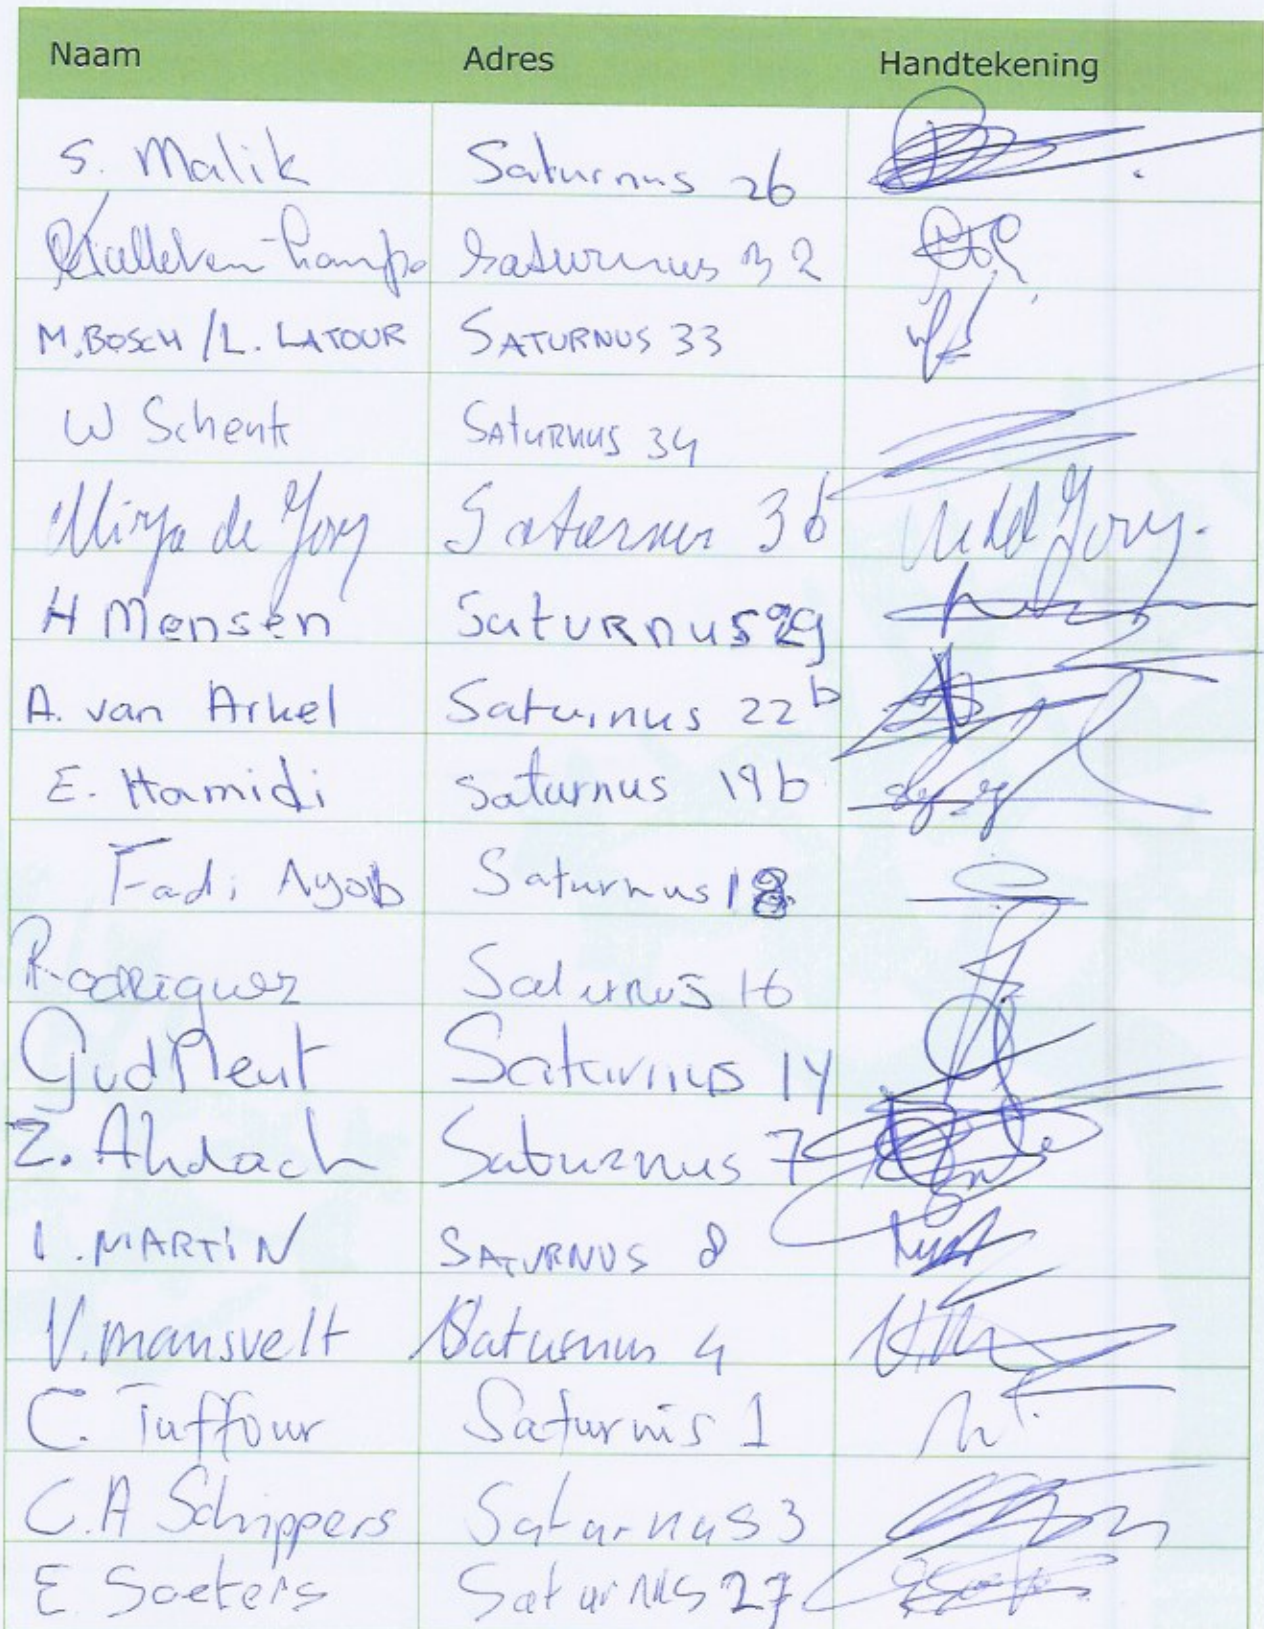 Naam Adres Handtekening
S. Malik Saturnus 26
Saturnus 32
M. BOSCH / L. LATOUR SATURNUS 33
W Schenk SATURNUS 34
Mirja de Jong Saturnus 36
H Mensen SATURNUS 29
A. van Arkel Saturnus 22b
E. Hamidi Saturnus 19b
Fadi Ayob Saturnus 18
Rodriguez Saturnus 16
Saturnus 14
Z. Ahdach Saturnus 7
I. MARTIN SATURNUS 8
V. mansvelt Saturnus 4
C. Tuffour Saturnis 1
C.A Schippers Saturnus 3
E Soeters Saturnus 27